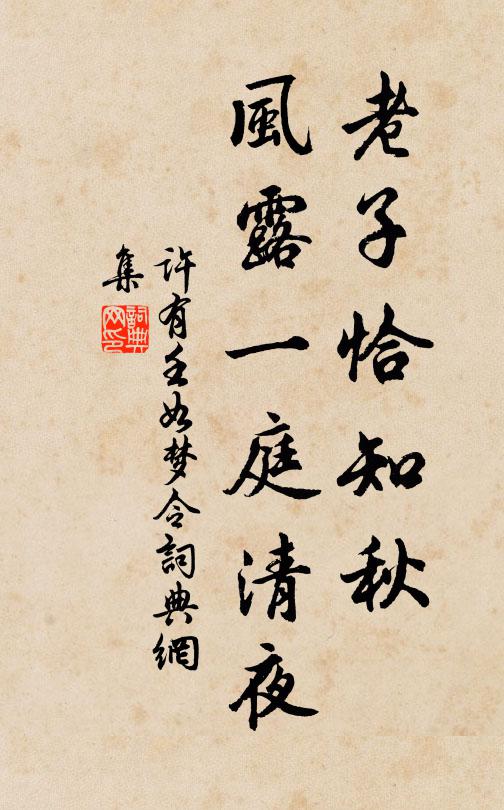 老子恰知秋
風露一庭清夜
许有壬如梦令詞典網
集
詞典
网印